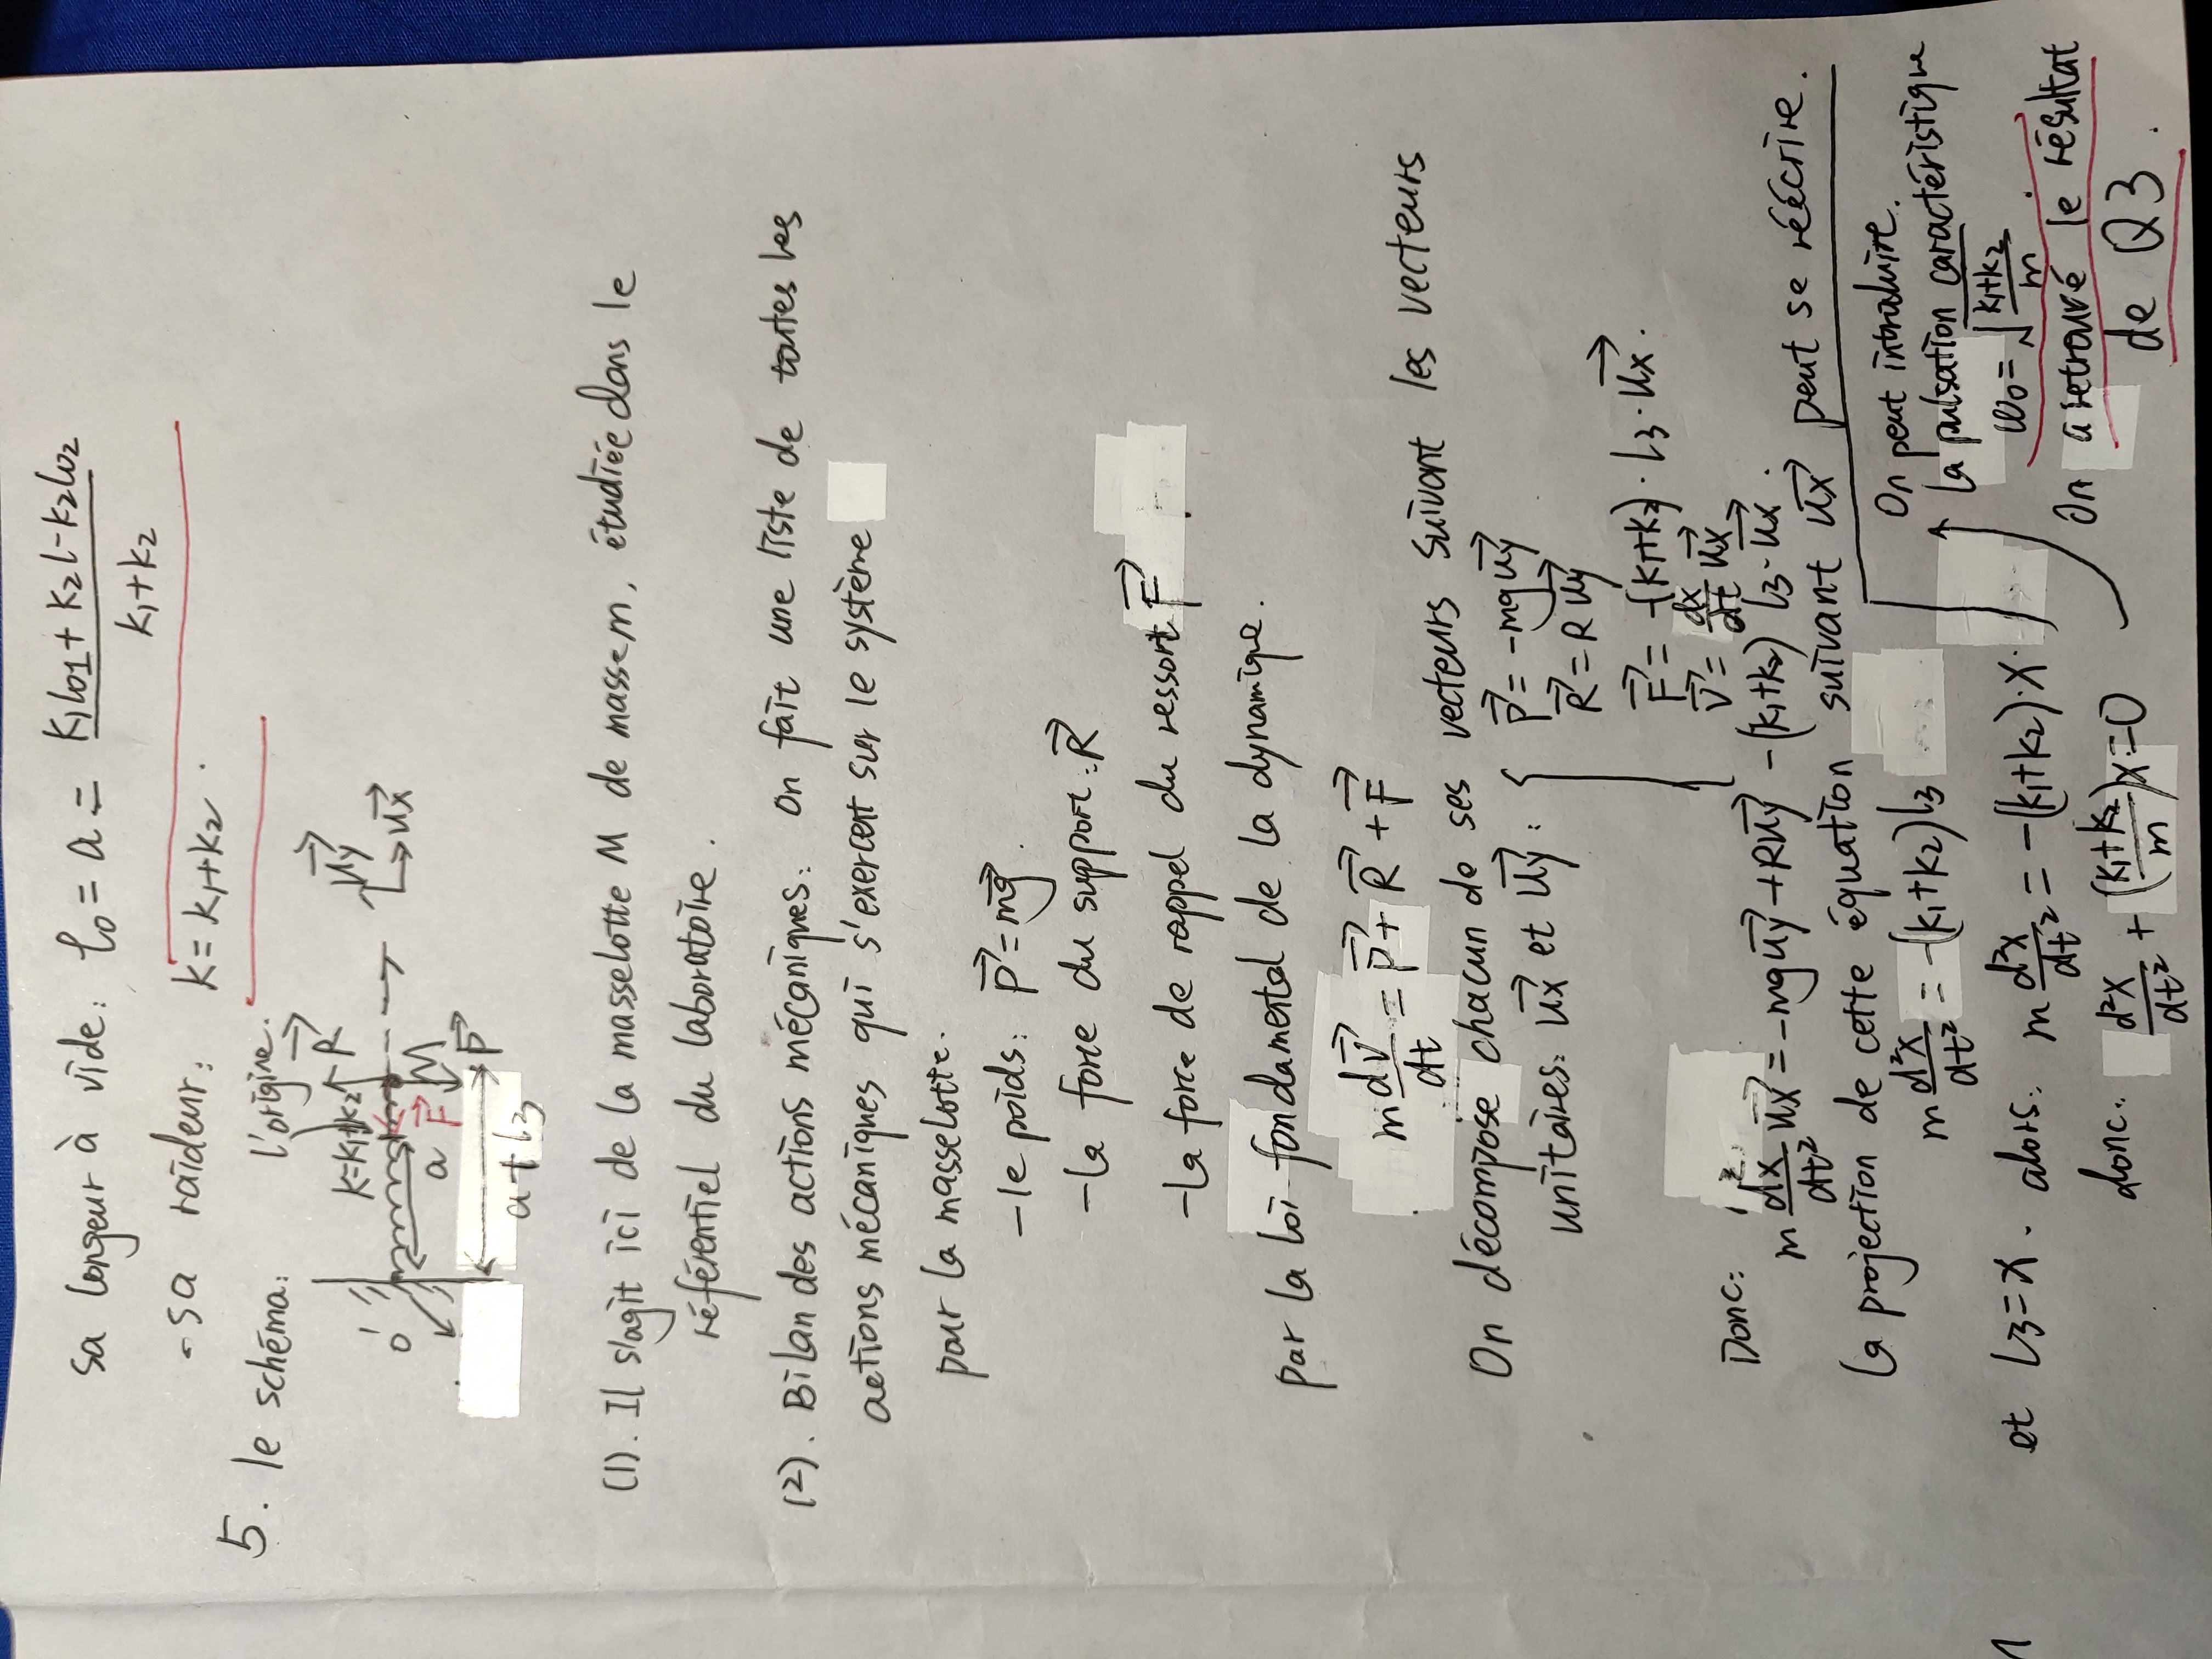 sa longeur à vide: l₀ = a = (k₁l₀₁ + k₂l - k₂l₀₂)/(k₁+k₂)
- sa raideur: k = k₁+k₂.
5. le schéma:
l'origine.
R⃗
k=k₁+k₂
u⃗y
O'
u⃗x
a
F⃗
M
P⃗
a+l₃
(1). Il s'agit ici de la masselotte M de masse m, étudiée dans le
référentiel du laboratoire.
(2). Bilan des actions mécaniques: On fait une liste de toutes les
actions mécaniques qui s'exercent sur le système
pour la masselotte.
- le poids: P⃗ = mg⃗.
- la force du support: R⃗
- la force de rappel du ressort F⃗
par la loi fondamental de la dynamique.
m dv⃗/dt = P⃗ + R⃗ + F⃗
On décompose chacun de ses vecteurs suivant les vecteurs
unitaires: u⃗x et u⃗y:
{ P⃗ = -mg u⃗y
R⃗ = R u⃗y
F⃗ = -(k₁+k₂)·l₃·u⃗x.
v⃗ = dx/dt u⃗x
Donc:
m d²x/dt² u⃗x = -mg u⃗y + R u⃗y - (k₁+k₂) l₃·u⃗x.
la projection de cette équation suivant u⃗x peut se réécrire.
m d²x/dt² = -(k₁+k₂)l₃
et l₃=x. alors: m d²x/dt² = -(k₁+k₂)·x.
donc: d²x/dt² + ((k₁+k₂)/m)x = 0
On peut introduire.
la pulsation caractéristique
ω₀ = √((k₁+k₂)/m).
On a retrouvé le résultat
de Q3.